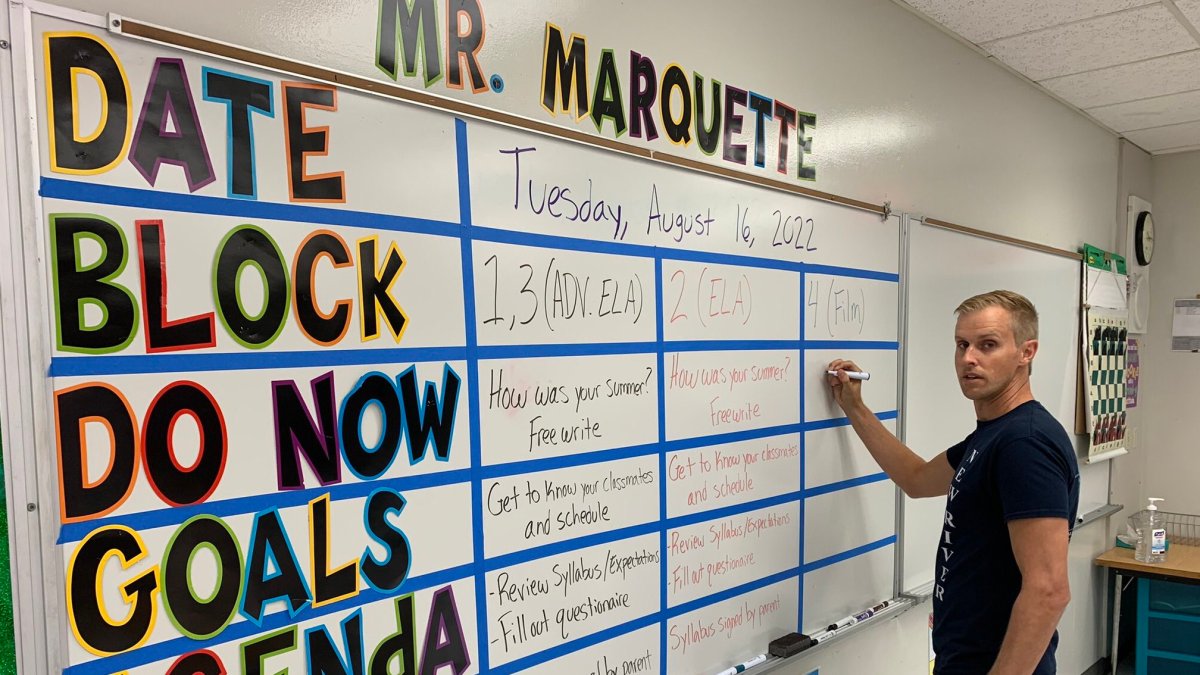 MR. MARQUETTE
DATE
Tuesday, August 16, 2022
BLOCK
1,3 (ADV. ELA)
2 (ELA)
4 (Film)
DO NOW
How was your summer?
Free write
How was your summer?
Free write
GOALS
Get to know your classmates
and schedule
Get to know your classmates
and schedule
AGENDA
-Review Syllabus/Expectations
-Fill out questionaire
-Review Syllabus/Expectations
-Fill out questionaire
signed by parent
Syllabus signed by parent
NEW RIVER